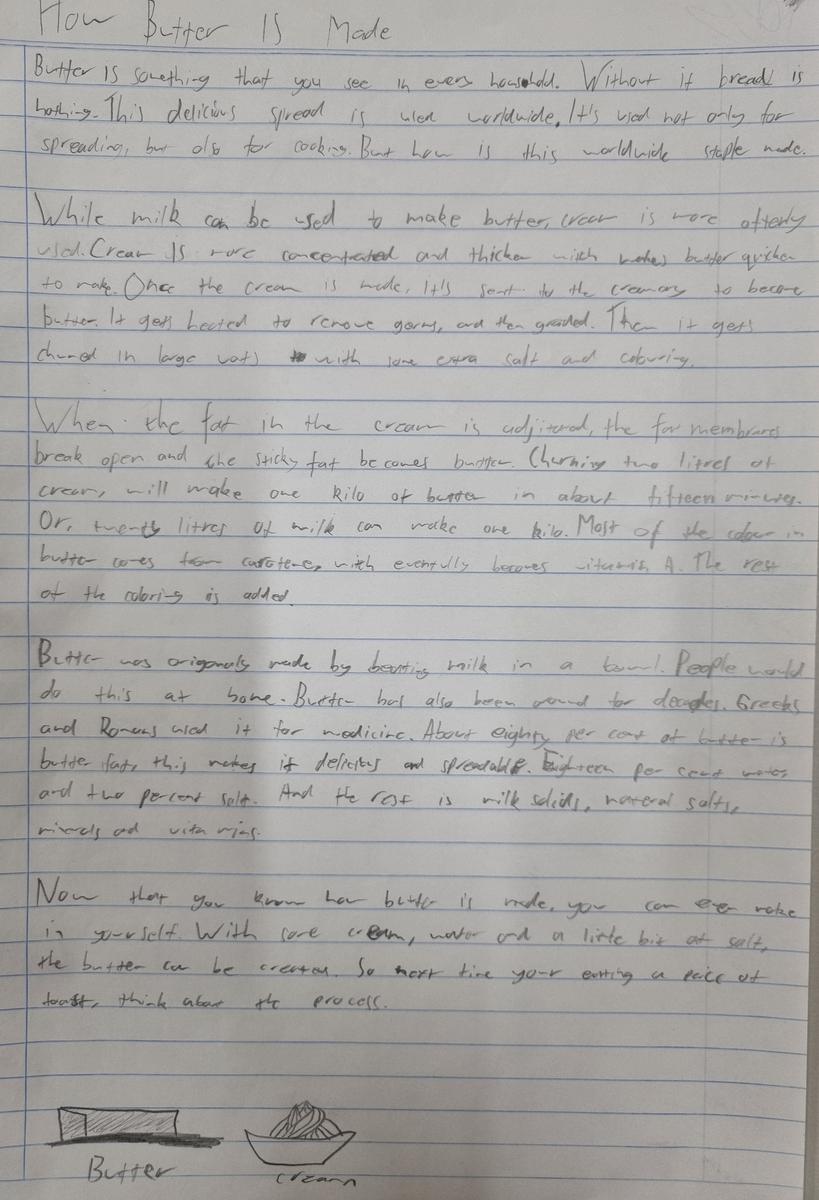 How Butter Is Made
Butter is something that you see in every household. Without it bread is
nothing. This delicious spread is used worldwide. It's used not only for
spreading, but also for cooking. But how is this worldwide staple made.
While milk can be used to make butter, cream is more oftenly
used. Cream is more concentrated and thicker wich makes butter quicker
to make. Once the cream is made, it's sent to the creamery to become
butter. It gets heated to remove germs, and then graded. Then it gets
churned in large vats with some extra salt and colouring.
When the fat in the cream is adjitared, the fat membranes
break open and the sticky fat becomes butter. Churning two litres of
cream, will make one kilo of butter in about fifteen minutes.
Or, twenty litres of milk can make one kilo. Most of the colour in
butter comes from carotene, wich eventully becomes vitamin A. The rest
of the coloring is added.
Butter was origonaly made by beating milk in a bowl. People would
do this at home. Butter has also been around for decades. Greeks
and Romans used it for medicine. About eighty per cent of butter is
butter fat, this makes it delicious and spreadable. Eighteen per cent water
and two percent salt. And the rest is milk solids, nateral salts,
minerals and vitamins.
Now that you know how butter is made, you can even make
in yourself. With some cream, water and a little bit of salt,
the butter can be created. So next time your eating a peice of
toast, think about the process.
Butter
cream